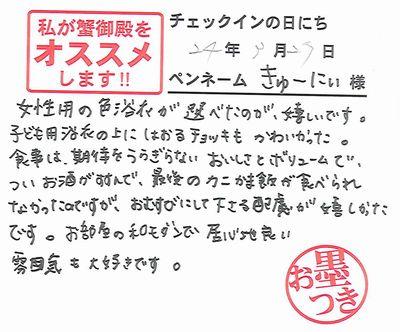 私が蟹御殿を
オススメ
します!!
チェックインの日にち
24年9月29日
ペンネーム きゅーにぃ 様
女性用の色浴衣が選べたのが、嬉しいです。
子ども用浴衣の上にはおるチョッキもかわいかった。
食事は、期待をうらぎらない おいしさとボリュームで、
ついお酒がすすんで、最後のカニかま飯が食べられ
なかったのですが、おむすびにして下さる配慮が嬉しかった
です。お部屋の和モダンで居心地良い
雰囲気も大好きです。
お墨つき